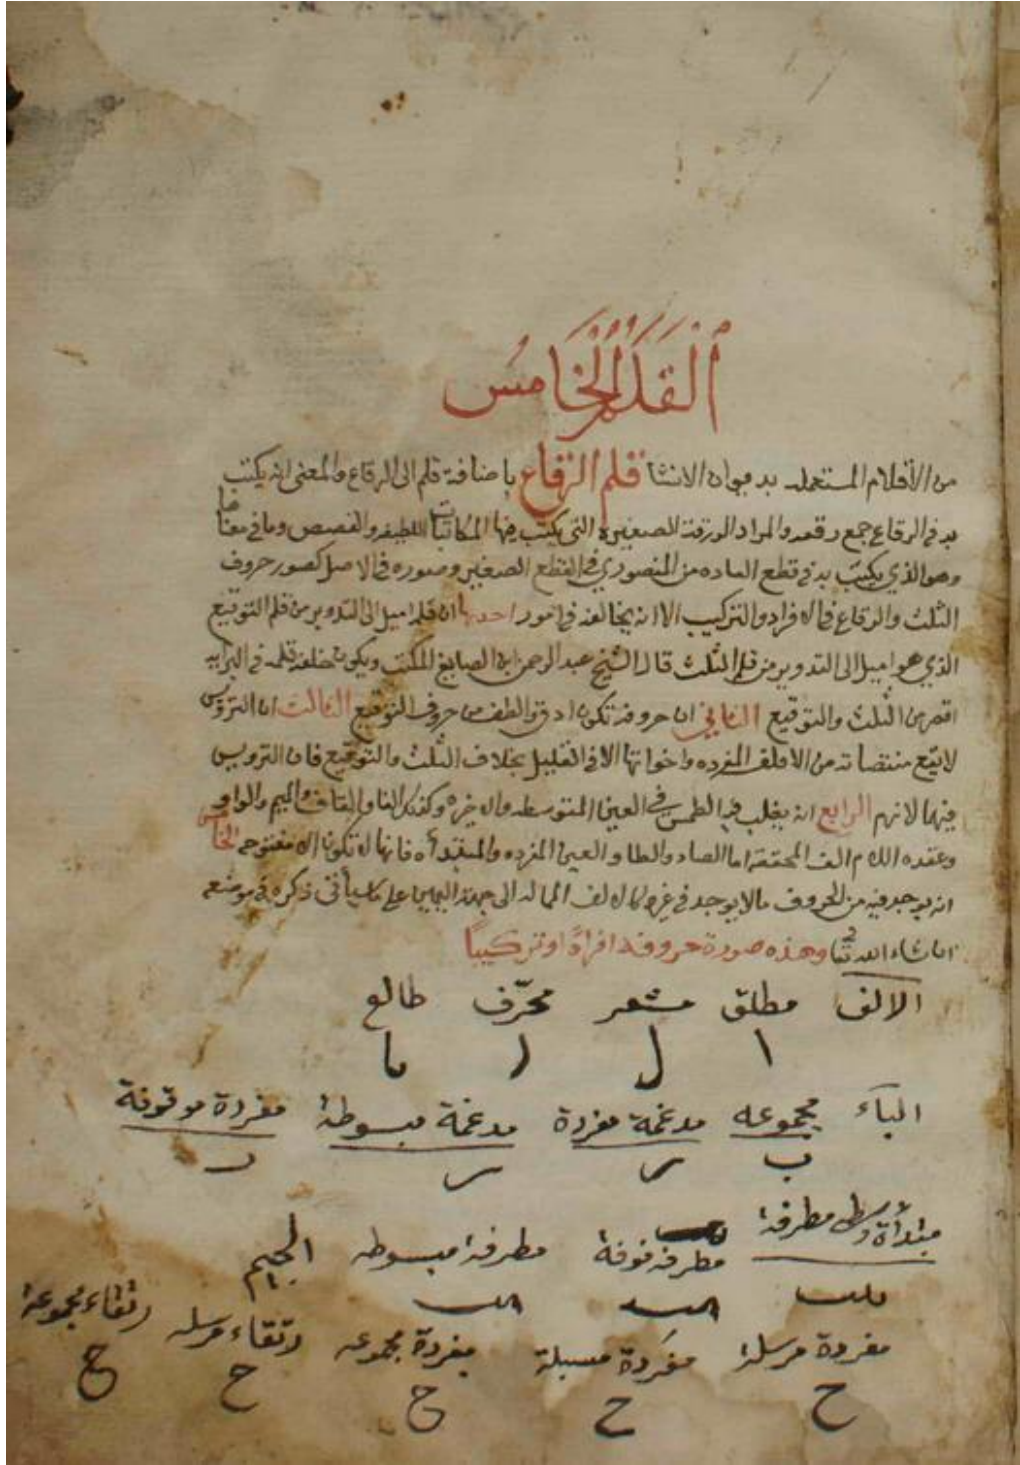 القلم الخامس
من الأقلام المستعمله بديوان الانشا قلم الرقاع باضافة قلم الى الرقاع والمعنى انه يكتب
به في الرقاع جمع رقعه والمراد الورقة الصغيرة التي يكتب فيها المكاتبات اللطيفه والقصص وما في معناها
وهو الذي يكتب به في قطع العاده من المنصوري في القطع الصغير وصوره في الاصل كصور حروف
الثلث والرقاع في الافراد والتركيب الا انه يخالفه في امور احدها ان قلم اميل الى التدوير من قلم التوقيع
الذي هو اميل الى التدوير من قلم الثلث قال الشيخ عبد الرحمن ابن الصايغ المكتب ويكون جلفة قلمه في البرايه
اقصر من الثلث والتوقيع الثاني ان حروفه تكون ادق والطف من حروف التوقيع الثالث ان الترويس
لا يقع في منتصباته من الالف المفرده واخواتها الا في القليل بخلاف الثلث والتوقيع فان الترويس
فيهما لازم الرابع انه يغلب فيه الطمس في العين المتوسطه والاخيره وكذلك الفا والقاف والميم والواو
وعقده اللام الف المحققه اما الصاد والطا والعين المفرده والمبتدأه فانها لا تكون الا مفتوحه الخامس
انه يوجد فيه من الحروف مالا يوجد في غيره كالالف الماله الى جهة اليمين على ما سيأتي ذكره في موضعه
ان شاء الله تعا وهذه صورة حروفه افرادًا وتركيبًا
الالف مطلق مشعر محرّف طالع
ا ل ا ما
الباء مجموعه مدغمة مفردة مدغمة مبسوطة مفردة موقوفة
ب
مبتدأة وسطى مطرفة مطرفة موقوفة مطرفة مبسوطه الجيم
مفردة مرسلة مفردة مسبلة مفردة مجموعه رتقاء مرسله رتقاء مجموعة
ح ح ح ح ح